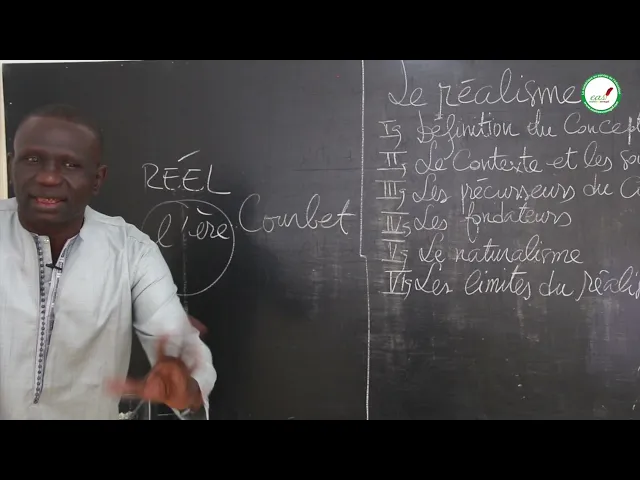 RÉEL
l'ère
Courbet
Le réalisme
I, Définition du Concept
II, Le Contexte et les
III, Les précurseurs du
IV, Les fondateurs
V, Le naturalisme
VI, Les limites du